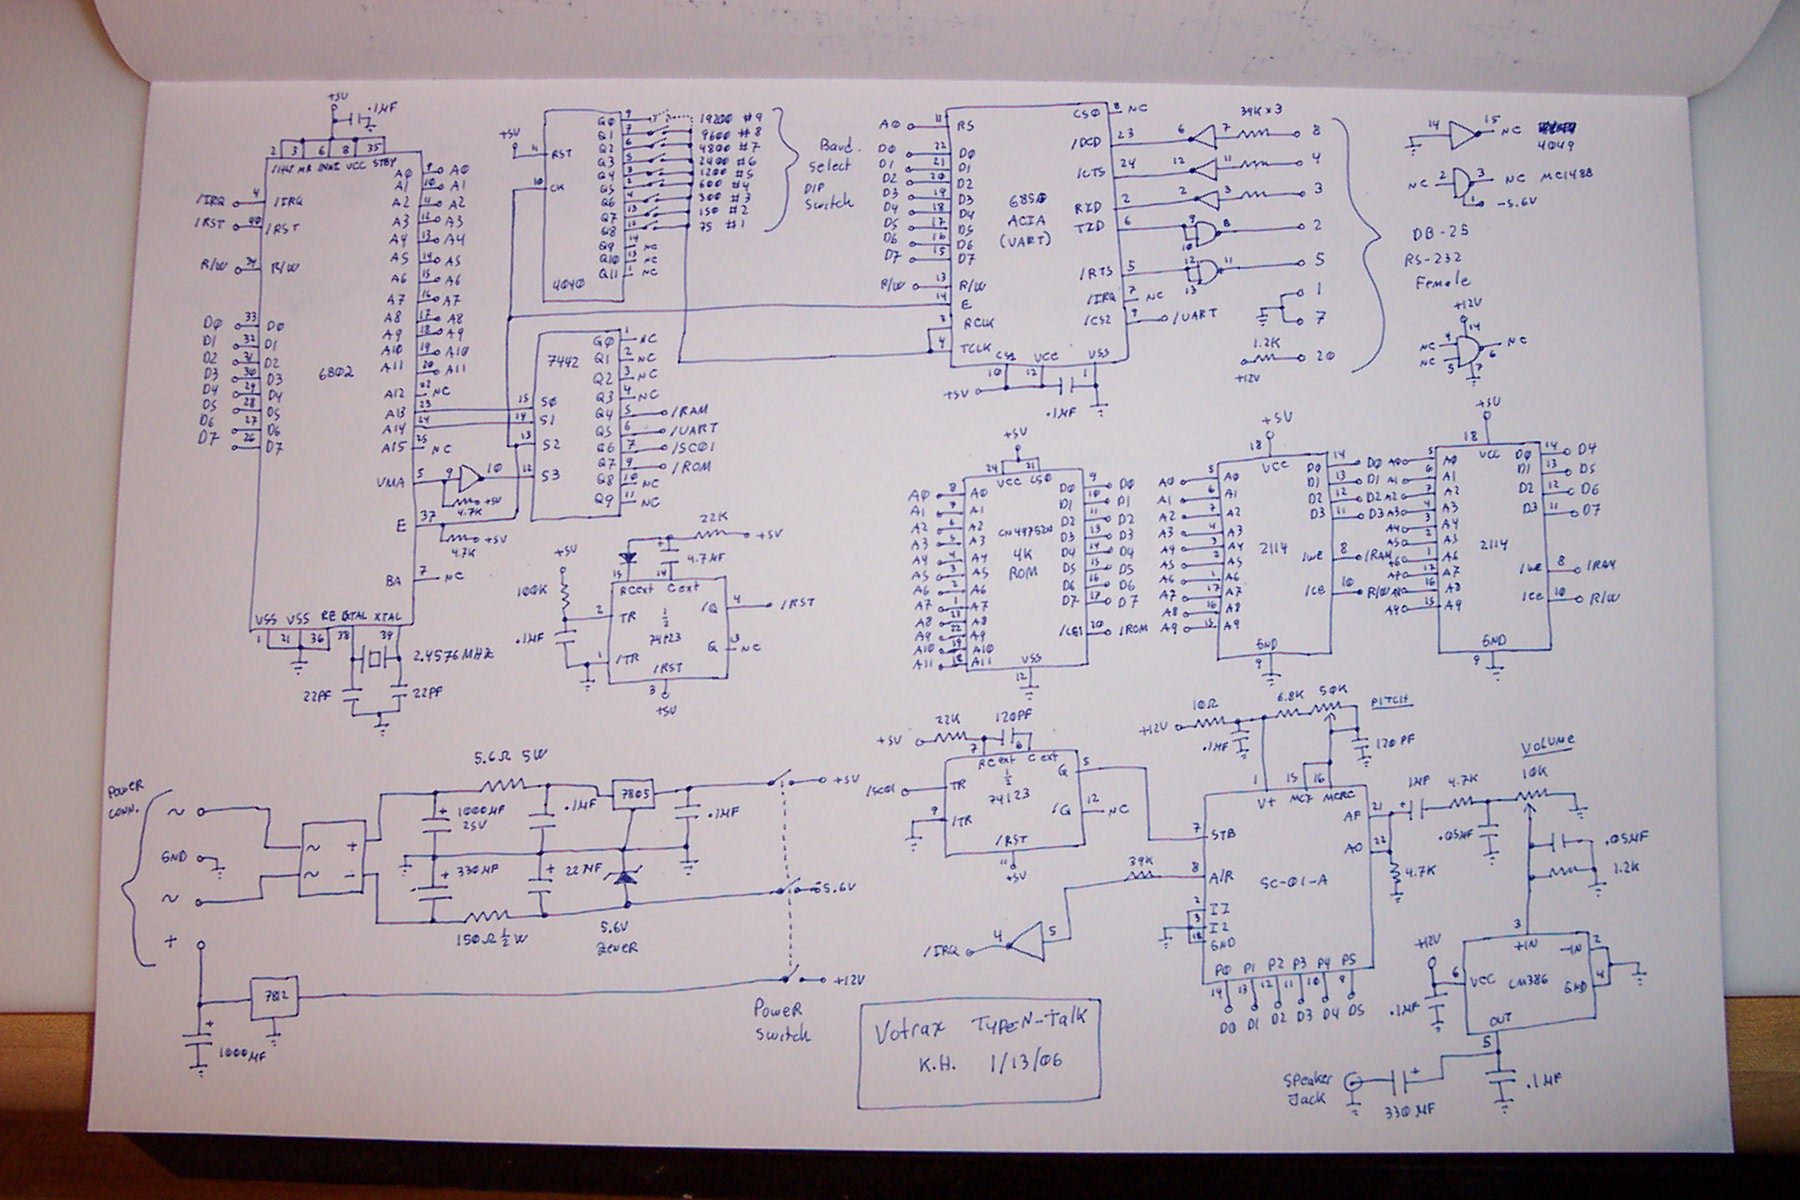 +5V
.1MF
2 3 6 8 35
/HLT MR VCC STBY
/IRQ 4 /IRQ
/RST 40 /RST
R/W 34 R/W
D0 33 D0
D1 32 D1
D2 31 D2
D3 30 D3
D4 29 D4
D5 28 D5
D6 27 D6
D7 26 D7
6802
A0 9 A0
A1 10 A1
A2 11 A2
A3 12 A3
A4 13 A4
A5 14 A5
A6 15 A6
A7 16 A7
A8 17 A8
A9 18 A9
A10 19 A10
A11 20 A11
A12 22 NC
A13 23
A14 24
A15 25 NC
VMA 5 9 10
4.7K +5V
E 37
4.7K +5V
BA 7 NC
VSS VSS RE XTAL
1 21 36 38 39
2.4576MHZ
22PF 22PF
+5V 11 RST
10 CK
4040
Q0 9 19200 #9
Q1 7 9600 #8
Q2 6 4800 #7
Q3 5 2400 #6
Q4 3 1200 #5
Q5 2 600 #4
Q6 4 300 #3
Q7 13 150 #2
Q8 12 75 #1
Q9 14 NC
Q10 NC
Q11 1 NC
Baud
Select
DIP
Switch
7442
15 S0
14 S1
13 S2
12 S3
Q0 1 NC
Q1 2 NC
Q2 3 NC
Q3 4 NC
Q4 5 /RAM
Q5 6 /UART
Q6 7 /SC01
Q7 9 /ROM
Q8 10 NC
Q9 11 NC
A0 11 RS
D0 22 D0
D1 21 D1
D2 20 D2
D3 19 D3
D4 18 D4
D5 17 D5
D6 16 D6
D7 15 D7
R/W 13 R/W
14 E
3 RCLK
4 TCLK
6850
ACIA
(UART)
CS0 8 NC
/DCD 23 6 7 39K x 3 8
/CTS 24 12 11 4
RXD 2 2 3 3
TXD 6 9 10 8 2
/RTS 5 12 13 11 5
/IRQ 7 NC
/CS2 9 /UART
1
7
1.2K
+12V 20
CS1 VCC VSS
10 12 1
+5V
.1MF
14 15 NC
4049
NC 2 3 NC MC1488
1 -5.6V
DB-25
RS-232
Female
+12V
14
NC 4
NC 5 6 NC
7
+5V
22K +5V
4.7MF
15 14
RCext Cext
+5V
100K
.1MF
2 TR
1 /TR
1/2
74123
/Q 4 /RST
Q 13 NC
/RST
3
+5V
+5V
24 21
VCC CS0
A0 8 A0
A1 7 A1
A2 6 A2
A3 5 A3
A4 4 A4
A5 3 A5
A6 2 A6
A7 1 A7
A8 A8
A9 22 A9
A10 19 A10
A11 18 A11
4K
ROM
D0 9 D0
D1 10 D1
D2 11 D2
D3 13 D3
D4 14 D4
D5 15 D5
D6 16 D6
D7 17 D7
20 /ROM
VSS
12
+5V
18
VCC
A0 5 A0
A1 6 A1
A2 7 A2
A3 4 A3
A4 3 A4
A5 2 A5
A6 1 A6
A7 17 A7
A8 16 A8
A9 15 A9
2114
D0 14 D0
D1 13 D1
D2 12 D2
D3 11 D3
/WE 8 /RAM
/CE 10 R/W
GND
9
+5V
18
VCC
A0 5 A0
A1 6 A1
A2 7 A2
A3 4 A3
A4 3 A4
A5 2 A5
A6 1 A6
A7 17 A7
A8 16 A8
A9 15 A9
2114
D0 14 D4
D1 13 D5
D2 12 D6
D3 11 D7
/WE 8 /RAM
/CE 10 R/W
GND
9
Power
Conn.
~
GND
~
+
~ +
~ -
5.6Ω 5W
1000MF
25V
.1MF
7805
.1MF
330MF
22MF
150Ω 1/2 W
5.6V
Zener
+5V
-5.6V
+12V
7812
1000MF
Power
Switch
+5V 22K 120PF
7 6
RCext Cext
/SC01 TR
9 /TR
1/2
74123
Q 5
/Q 12 NC
/RST
11
+5V
39K
/IRQ 4 5
+12V 10Ω
.1MF
6.8K 50K PITCH
120PF
1 15 16
V+ MCX MCRC
7 STB
8 A/R
2 I1
3 I2
18 GND
SC-01-A
AF 21
AO 22
1MF 4.7K
4.7K
.05MF
VOLUME
10K
.05MF
1.2K
P0 P1 P2 P3 P4 P5
14 13 12 11 10 9
D0 D1 D2 D3 D4 D5
+12V
.1MF
6 VCC
3
+IN
-IN 2
GND 4
LM386
OUT
5
.1MF
Speaker
Jack
330MF
Votrax Type-N-Talk
K.H. 1/13/06